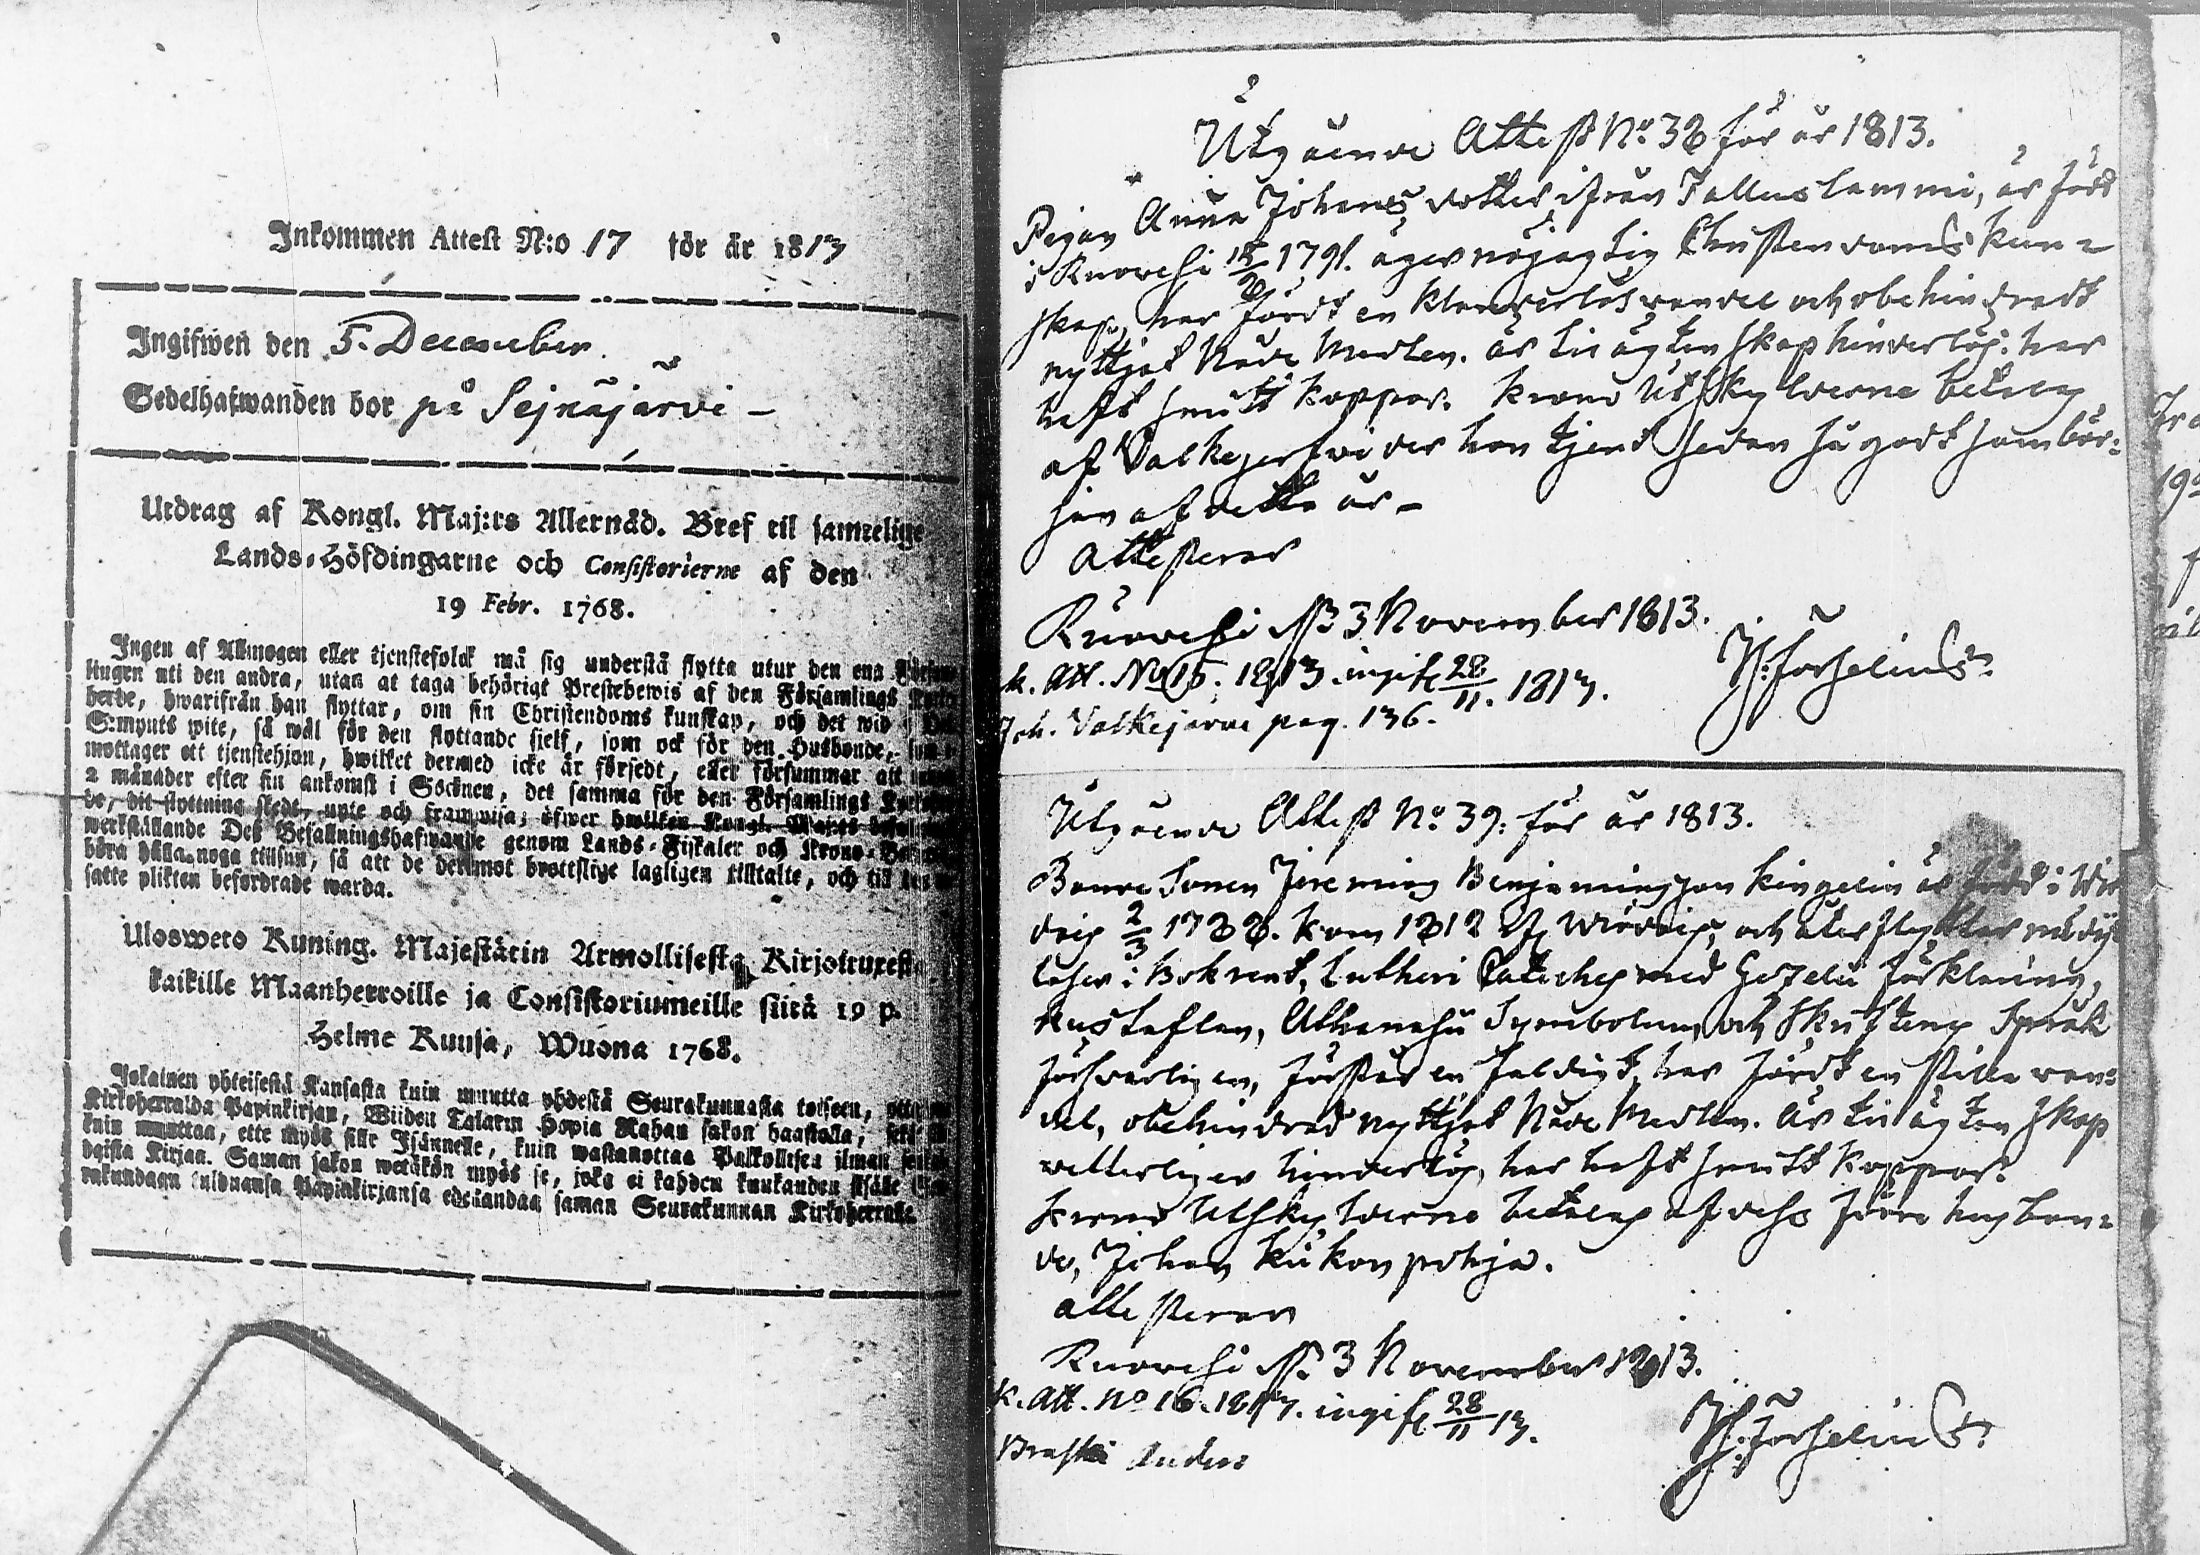 Inkommen Attest N:o 17 för år 1813
Ingifwen den 5. December.
Sedelhafwanden bor på Sejnäjärvi –
Utdrag af Kongl. Maj:ts Allernåd. Bref til samtelige
Lands-Höfdingarne och Consistorierne af den
19 Febr. 1768.
Ingen af Allmogen eller tjenstefolck må sig understå flytta utur den ena
lingen uti den andra, utan at taga behörigt Prestebewis af den Församlings
herde, hwarifrån han flyttar, om sin Christendoms kunskap, och det wid
S:mynts wite, så wäl för den flyttande sjelf, som ock för den Husbonde,
mottager ett tjenstehjon, hwilket dermed icke är försedt, eller försummar att
2 månader efter sin ankomst i Socknen, det samma för den Församlings
de, dit flyttning skedt, upte och framwisa; öfwer hwilken Kongl. Maj:ts
werkställande Dess Befallningshafwande genom Lands-Fiskaler och Krono-
böra hålla noga tillsyn, så att de deremot brottslige lagligen tilltalte, och till
satte plikten befordrade warda.
Ulosweto Kuning. Majestätin Armollisesta Kirjoituxesta
kaikille Maanherroille ja Consistoriumeille siitä 19 p.
Helme Kuusa, Wuona 1768.
Jokainen yhteisestä Kansasta kuin muutta yhdestä Seurakunnasta toiseen,
Kirkoherralda Papinkirjan, Wiiden Talarin Hopia Rahan sakon haastolla,
kuin muuttaa, ette myös sille Isännelle, kuin wastanottaa Palkollisen ilman
paista Kirjan. Saman sakon wetäkön myös se, joka ei kahden kuukauden sisälle
rakundaan tulduansa Papinkirjansa edestandaa saman Seurakunnan Kirkoherralle
Utgående Attest No. 38 för år 1813.
Pigan Anna Johans dotter ifrån Tallus lammi, är född
i Ruovesi 1791. äger nöjagtig Christendoms kun=
skap, har fördt en klanderlös vandel och obehindradt
nyttjat Nåde Medlen. är til ägtenskap hinderlös: har
haft smitt koppor. Krono Utskylderne betalas
af Valkejerfvi der hon tjent sedan så godt som bör=
jan af detta år –
Attesteras
Ruovesi d. 3 November 1813.
Hr: Forselius
k. Att. No 15. 1813. ingifv. 28/11. 1813.
Joh. Valkejärvi pag. 136.
Utgående Attest No. 39: för år 1813.
Bonde Sonen Jeremias Benjaminsson Ringelin är född i Wir
dois 2/3 1788. kom 1812 af Wirdois, och återflyttar nu dy.
läser i Bok rent, Lutheri Cateches med Gezelii förklaring,
Hustaflan, Athanasii Symbolum och Skriftens Språk
försvarligen, förstår enfaldigt, har fördt en stilla van=
del, obehindrad nyttjat Nåde Medlen. är til ägtenskap
vetterligen hinderlös, har haft smitt koppor.
Krono Utskylderne betalas af dess förra husbon=
de, Johan Kukonpohja.
attesteras
Ruovesi d. 3 November 1813.
Hr: Forselius
k. Att. No 16. 1813. ingifv. 28/11 13.
Anders